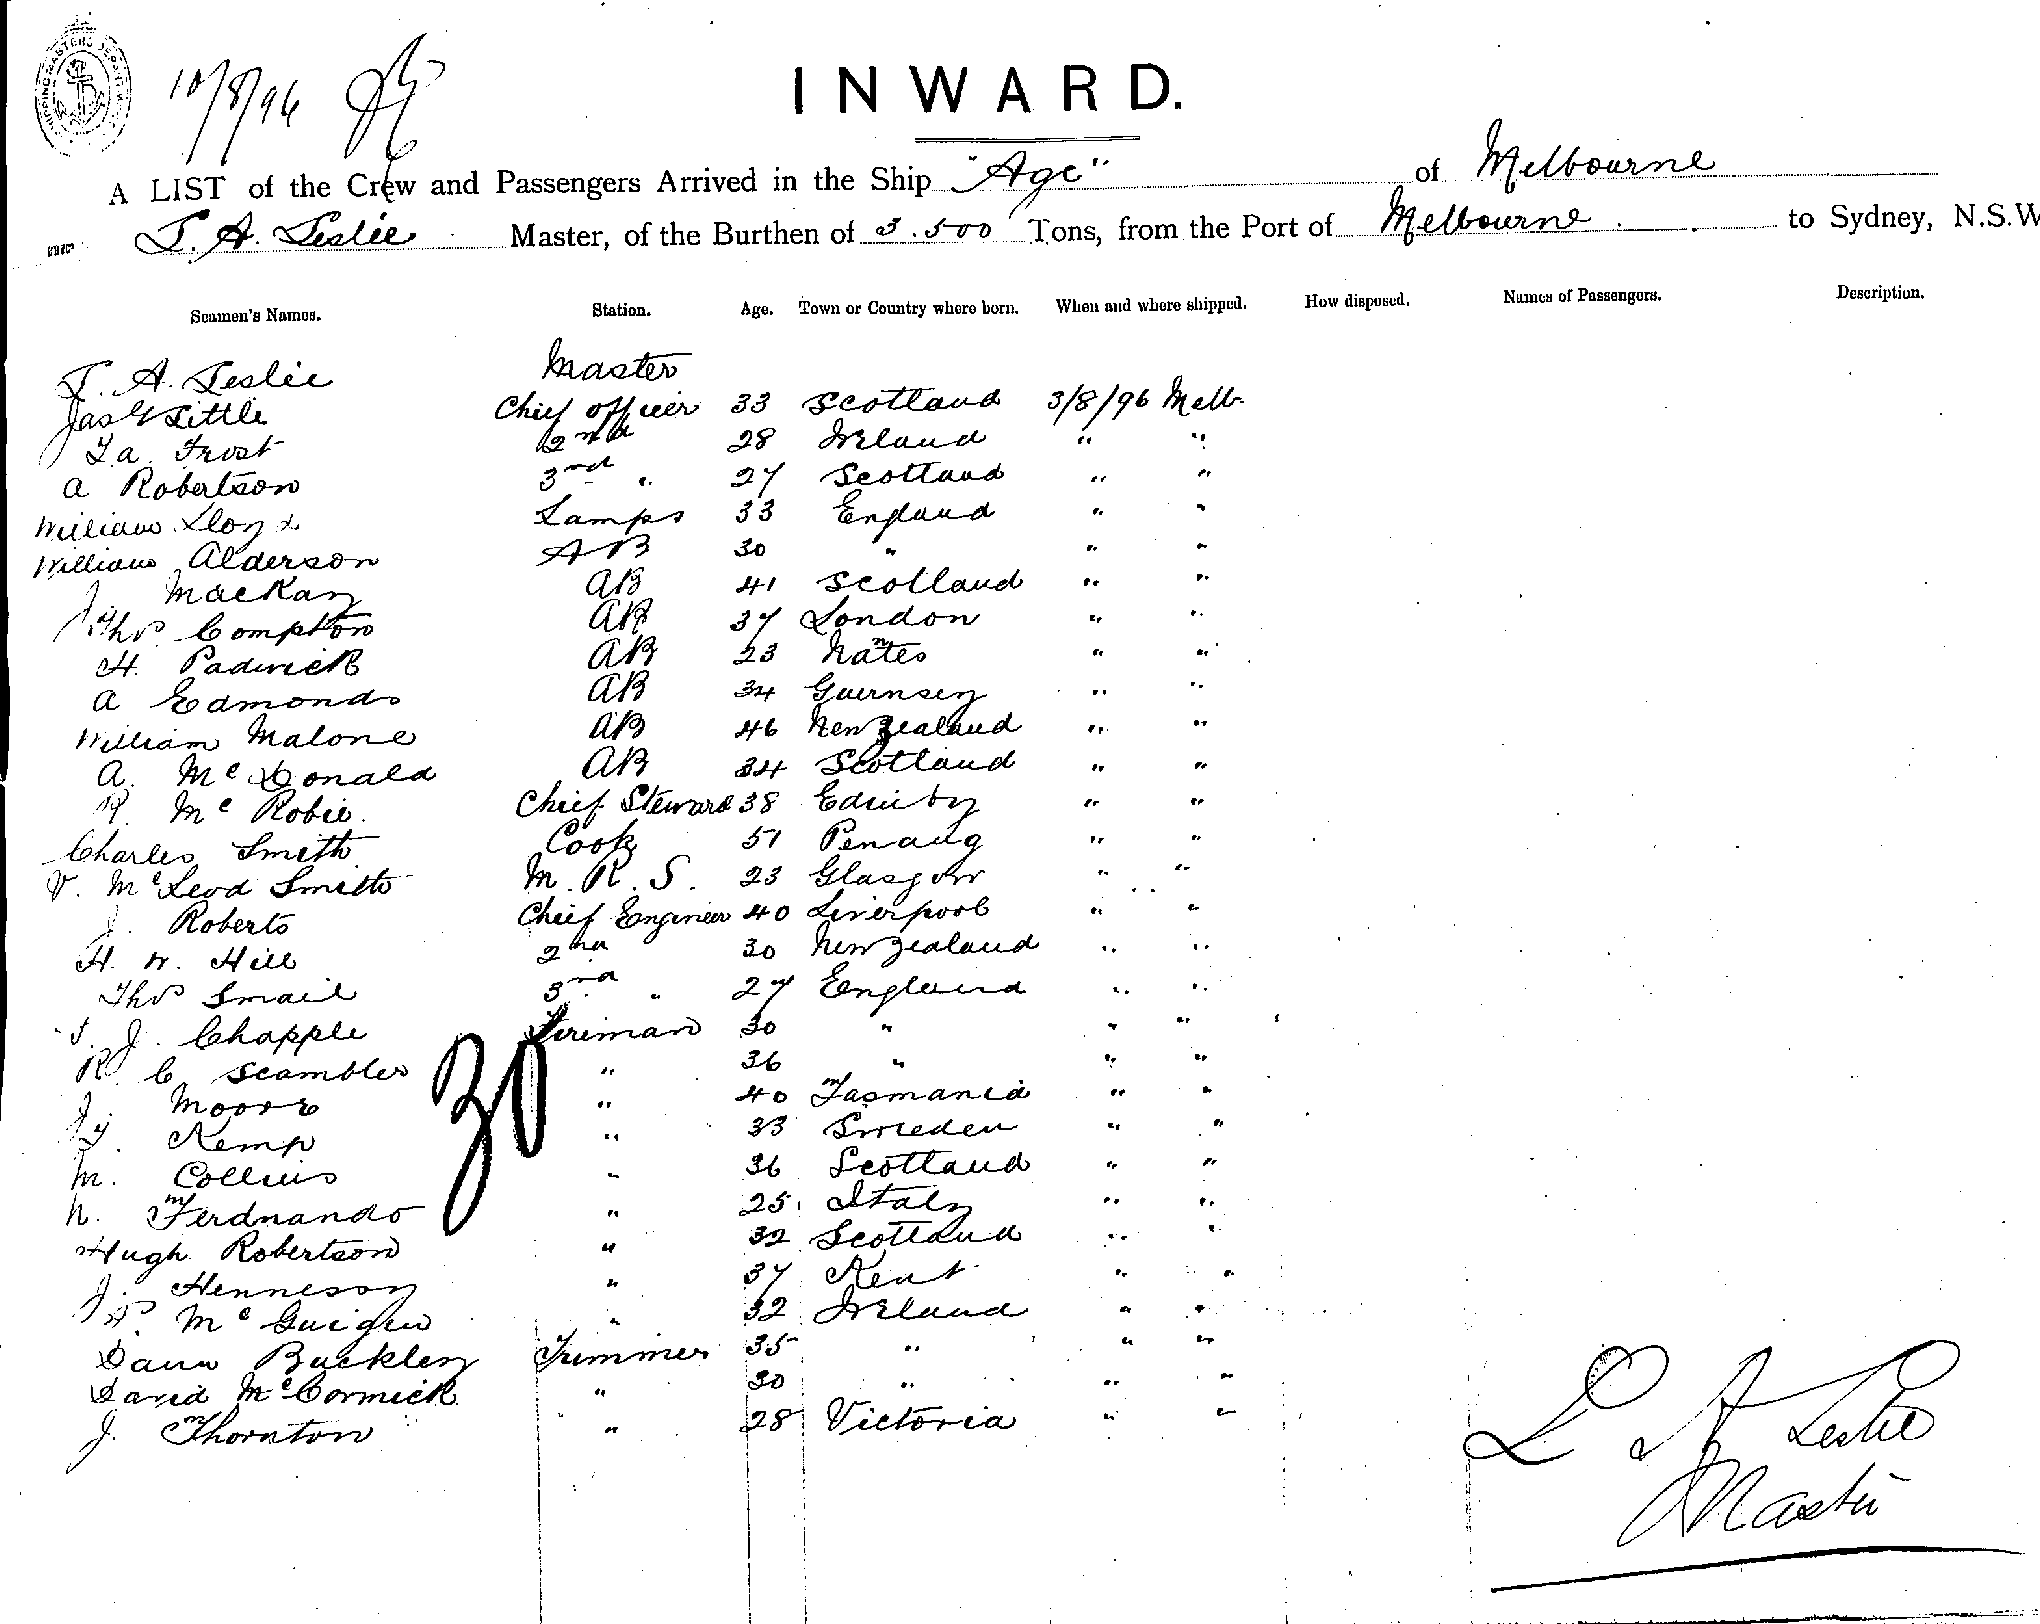 SHIPPING MASTERS
10/8/96
INWARD.
A LIST of the Crew and Passengers Arrived in the Ship "Age" of Melbourne
L. A. Leslie Master, of the Burthen of 3.500 Tons, from the Port of Melbourne to Sydney, N.S.W
Seamen's Names. Station. Age. Town or Country where born. When and where shipped. How disposed. Names of Passengers. Description.
L. A. Leslie Master
Jas Little Chief officer 33 Scotland 3/8/96 Melb.
Frost 2nd 28 Ireland " "
A Robertson 3rd " 27 Scotland " "
William Lloyd Lamps 33 England " "
William Alderson AB 30 " " "
J Mackay AB 41 Scotland " "
Thos Compton AB 37 London " "
H. Padwick AB 23 " "
A Edmonds AB 34 Guernsey " "
William Malone AB 46 New Zealand " "
A. McDonald AB 34 Scotland " "
R. McRobie. Chief Steward 38 Edinby " "
Charles Smith Cook 51 Penang " "
V. McLeod Smith M. R. S. 23 Glasgow " "
J. Roberts Chief Engineer 40 Liverpool " "
H. W. Hill 2nd 30 New Zealand " "
Thos Smail 3rd " 27 England " "
J. Chapple Fireman 30 " " "
R. C. Scambler " 36 " " "
J. Moore " 40 Tasmania " "
J. Kemp " 33 Sweden " "
M. Collins " 36 Scotland " "
N. Ferdnando " 25 Italy " "
Hugh Robertson " 32 Scotland " "
J. Henneson " 37 Kent " "
P. McGuigen " 32 Ireland " "
Danl Buckley Trimmer 35 " " "
David McCormick " 30 " " "
J. Thornton " 28 Victoria " "
30
L A Leslie
Master